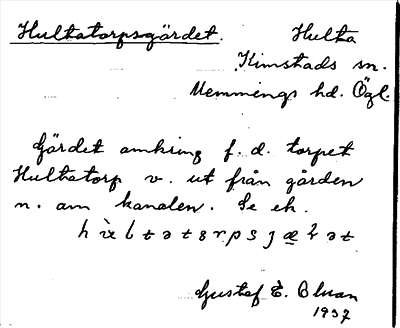 Hultatorpsgärdet. Hulta
Kimstads sn.
Memmings hd. Ögl.
Gärdet omkring f. d. torpet
Hultatorp v. ut från gården
n. om kanalen. Se ek.
Gustaf E.
1937